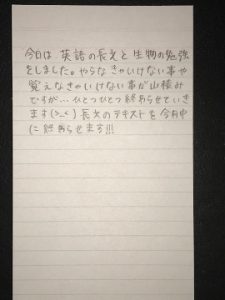 今日は 英語の長文と生物の勉強
をしました。やらなきゃいけない事や
覚えなきゃいけない事が山積み
ですが…ひとつひとつ終わらせていき
ます(>_<) 長文のテキストを今月中
に終わらせます!!!